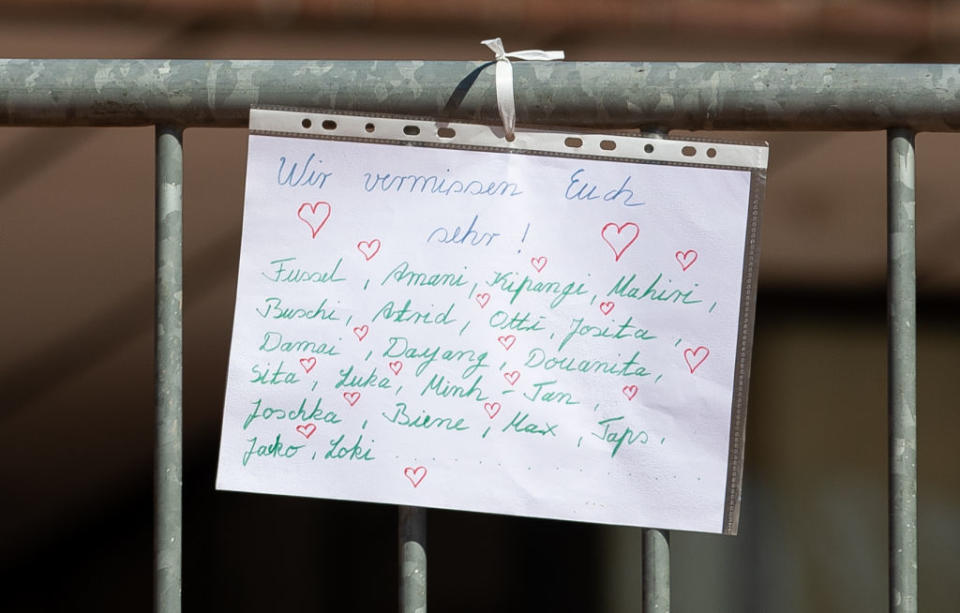 Wir vermissen Euch
sehr!
Fussel, Amani, Kipangi, Mahiri,
Buschi, Astrid, Otti, Josita,
Damai, Dayang, Douanita,
Sita, Luka, Minh-Tan,
Joschka, Biene, Max, Taps.
Jacko, Loki ..............